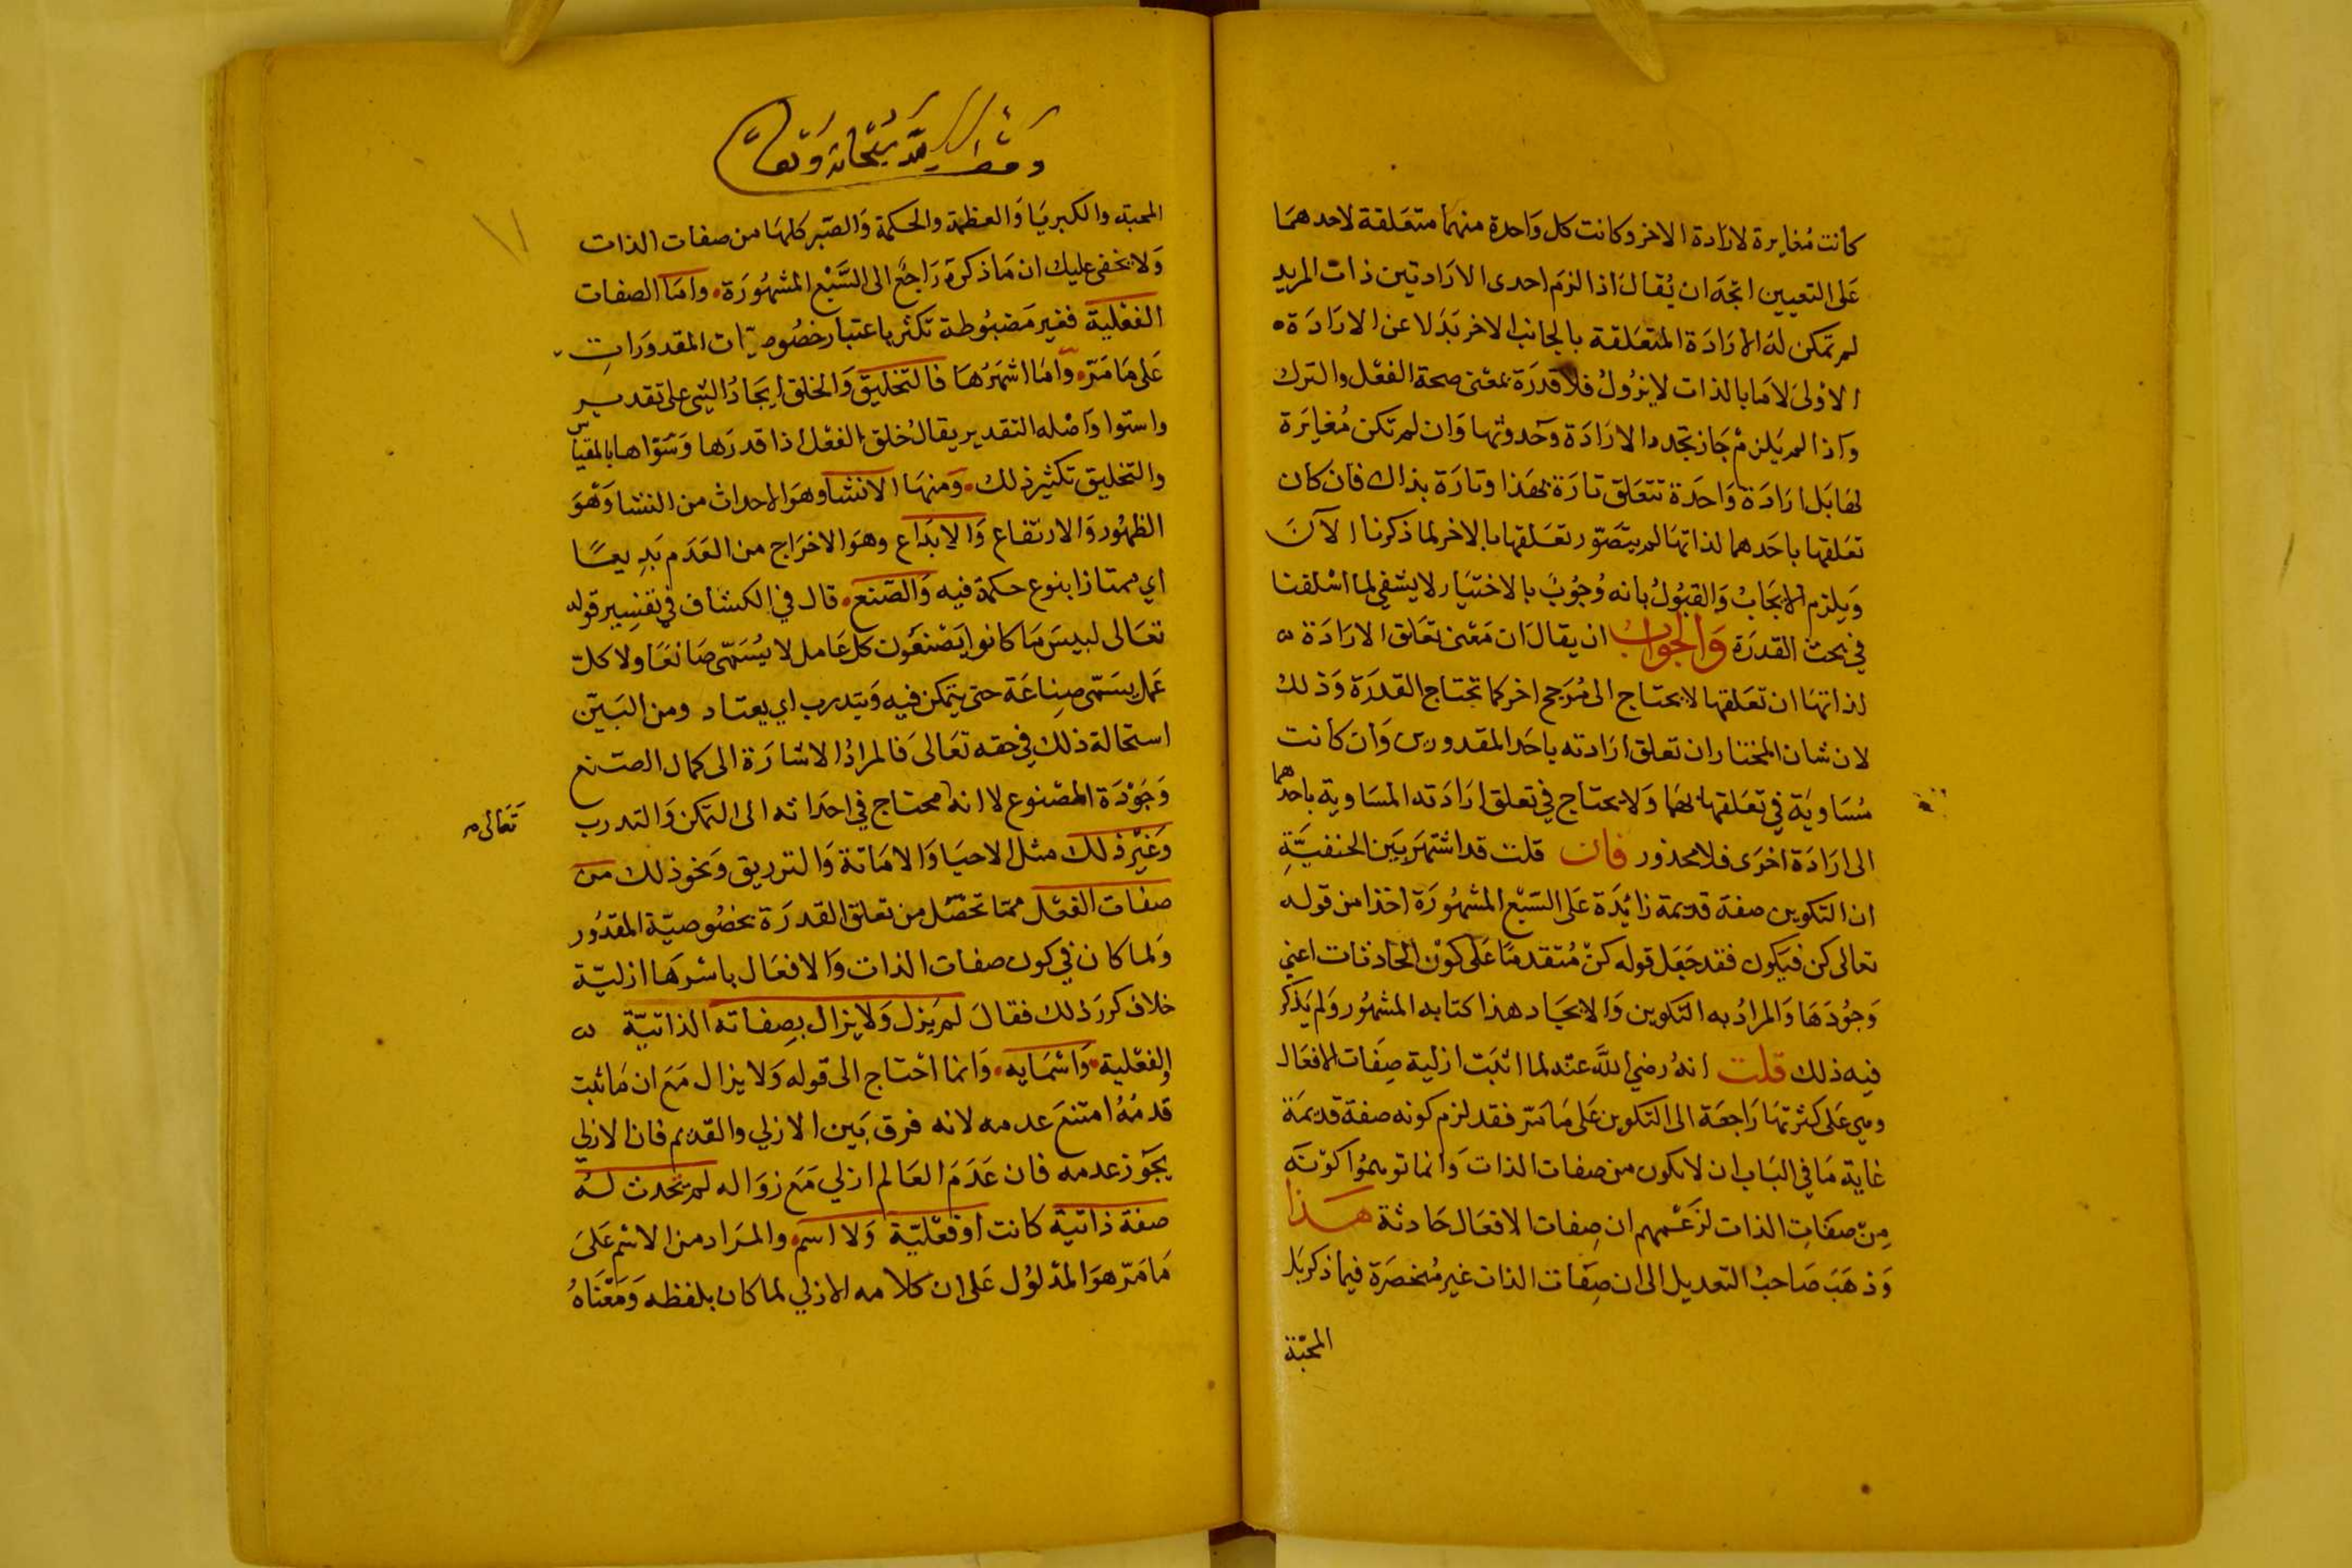 كانت مُغايرة لارادة الاخر وكانت كل وَاحدة منهما متعَلقة لاحدهمَا
عَلى التعيين اتجَه ان يُقالَ اذا لزم احدى الارَادتين ذات المريد
لم تمكن لهَ الارَادَة المتعَلقة بالجانب الاخر بَدَلا عن الارَادَة
الاوْلىَ لامَا بالذات لايزُولُ فلا قدرَة بمعْنى صحة الفعْل والترك
وَاذا لمر يَلزمْ جَاز تجدد الارَادَة وَحدوثها وَان لم تكن مُغايَرَة
لهَا بَل ارَادَة وَاحَدة تتعَلق تارَة بهَذا وتارَة بذاك فان كان
تعَلقها باحَدهما لذاتهَا لم يتصَوّر تعَلقها بالاخر لما ذكرنا الآنَ
وَيلزم الايجَابُ وَالقبُولُ بانه وُجُوبٌ بالاختيَار لايشفي لما اسْلفنا
في بحث القدرَة وَالجوابُ ان يقالَ ان مَعْنى تعَلق الارَادَة
لذاتهَا ان تعَلقها لايحتاج الى مُرَجح اخر كما تحتاج القدرَة وَذلك
لان شان المختار ان تعلق ارَادته باحَد المقدورين وَان كانت
مُسَاويَة في تعَلقها بهمَا وَلا يحتاج في تعلق ارَادَته المسَاوية باحدهما
الى ارَادَة اخرَى فلا محذور فان قلت قد اشتهَرَ بَين الحنفيَّةِ
ان التكوين صفة قديمة زائِدَة عَلى السَبْع المشهُورَة اخذا من قوله
تعالى كن فيَكون فقد جَعَل قوله كنْ مُتقدمًا عَلى كوْن الحَادثات اعني
وَجوُدَهَا وَالمرادُ به التكوين وَالايجَاد هذا كتابه المشهُور وَلم يَذكر
فيه ذلك قلت انهُ رضي اللَّه عنه لما اثبَت ازلية صِفَات الافعَال
وهي عَلى كثرتهَا رَاجعَة الى التكوين عَلى مَا مَرّ فقد لزم كونه صفة قديمَة
غاية مَا في البَاب ان لايكون من صفات الذات وَانما توهمُوا كوْنَه
مِنْ صفَاتِ الذات لزَعْمهم ان صِفات الافعَال حَادثة هَذا
وَذهَبَ صَاحبُ التعديل الى ان صِفَات الذات غير مُنحصَرَة فيما ذكر بَل
المحبّة
المحبته والكبريَا وَالعظمة والحكمة وَالصّبر كلهَا من صفات الذات
وَلا يخفى عليك ان مَا ذكرَهَ رَاجعٌ الى السَّبْع المشهُورَة وامَا الصفات
الفعْلية فغير مَضبُوطة تكثر باعتبار خصُوصيّات المقدورَاتِ
عَلى مَا مَرّ وَامَا اشهَرُهَا فالتخليق وَالخلق ايجَادُ الشئ على تقدير
واستوا وَاصْله التقدير يقالُ خلق الفعْل اذا قدرَها وَسَوّاها بالمقياس
والتخليق تكثير ذلك وَمنهَا الانشا وهوَ الاحداث من النشا وَهْوَ
الظهُور وَالارتفاع وَالابَدَاع وهوَ الاخرَاج من العَدَم بَدِيعًا
اي ممتازا بنوع حكمة فيه وَالصّنع قال في الكشاف في تفسِير قوله
تعَالى لبيسَ مَا كانوا يَصْنعُون كل عَامل لا يُسَمّى صَانعَا ولا كلّ
عَمل يسَمّى صِناعَة حتى يتمكن فيه وَيتدرب اي يعتاد ومن البَيّن
استحالة ذلك في حقه تعَالى فالمرادُ الاشارَة الى كمال الصّنع
وَجَوْدَة المصْنوع لا انه محتاج في احدَاثه الى التمكن وَالتدرب
تعَالى
وَغيْر ذلك مثل الاحيَا وَالامَاتة وَالترزيق وَنحوذلك من
صفات الفعْل ممّا تحصّل من تعلق القدرَة بخصُوصيّة المقدُور
وَلما كان في كون صفات الذات وَالافعَال باسْرهَا ازليّة
خلاف كررَ ذلك فقالَ لم يَزل وَلايزال بِصِفاته الذاتيّة
والفعْلية وَاسْمَايه وَانما احْتاج الى قوله وَلا يزال مَعَ ان مَا ثبت
قدمُهُ امتنعَ عدمه لانه فرق بَين الازلي والقديم فان الازلي
يجَوز عدمه فان عَدَمَ العَالم ازلي مَع زوَاله لم تحدث لهُ
صفة ذاتية كانت اوفعْليّة وَلا اسم والمرَاد من الاسْم عَلىَ
مَا مَرّ هوَ المدْلوُل عَلى ان كلامه الازلي لما كان بلفظه وَمَعْنَاهُ